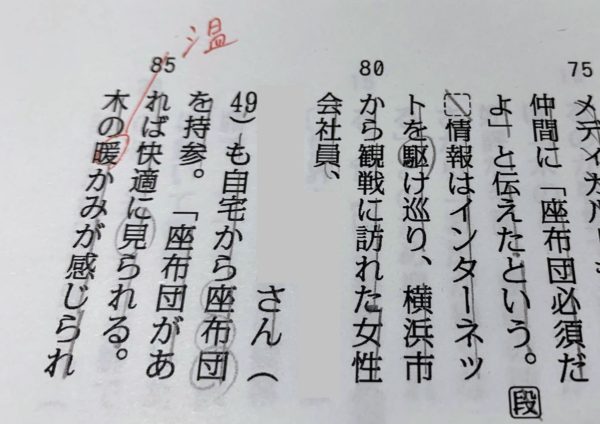 75
仲間に「座布団必須だ
よ」と伝えたという。
段
情報はインターネッ
トを駆け巡り、横浜市
80
から観戦に訪れた女性
会社員、
さん(
49)も自宅から座布団
を持参。「座布団があ
85
れば快適に見られる。
木の暖かみが感じられ
温